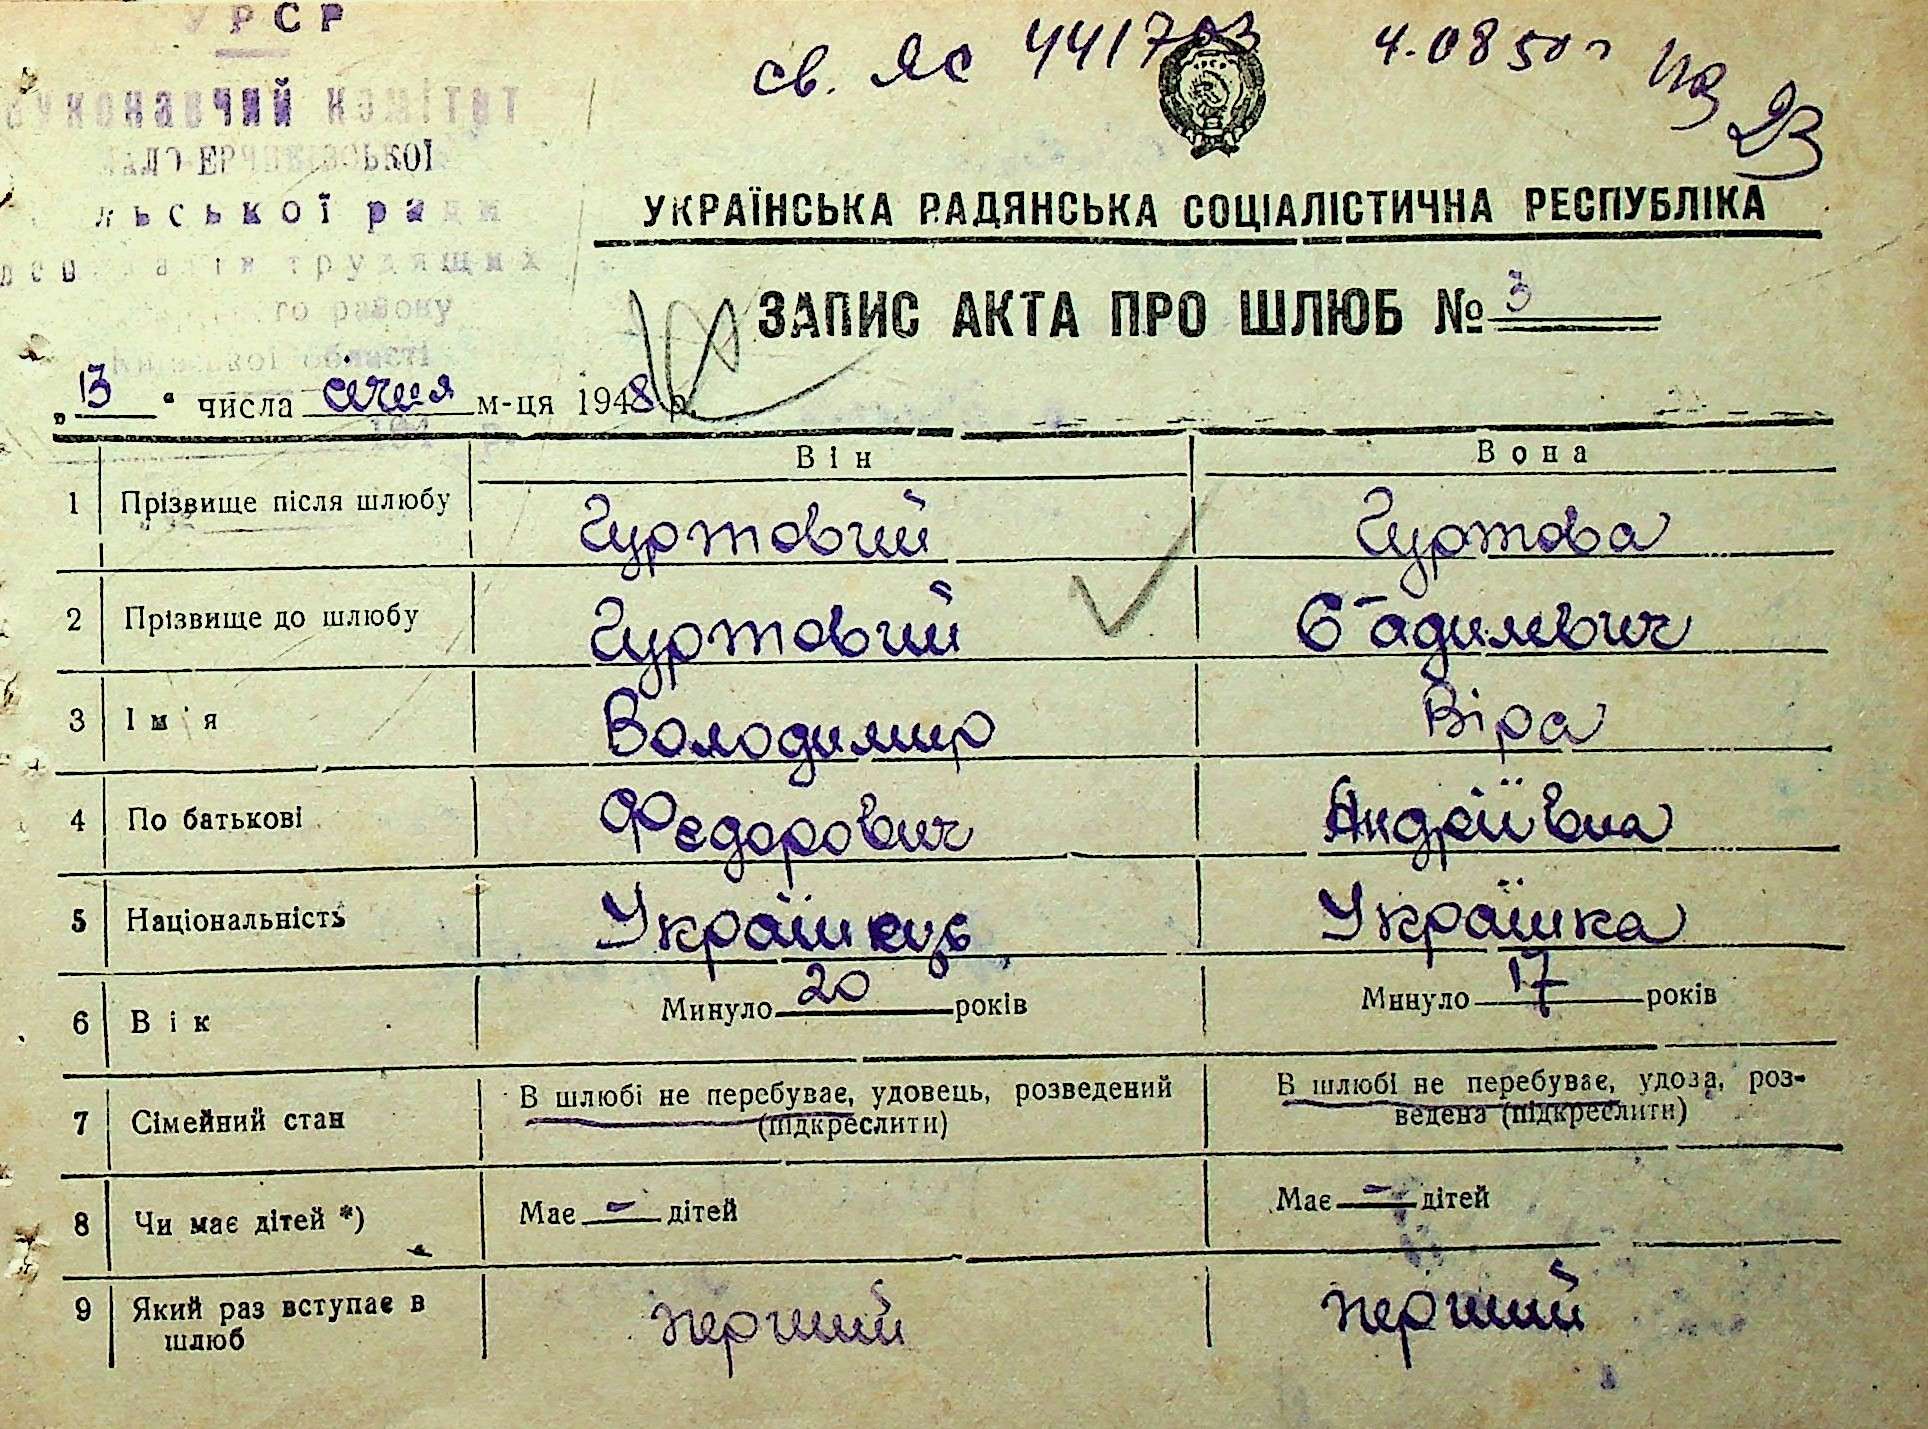 УРСР
св. ЯС 441703 4.08 50 г
Виконавчий комітет
МАЛО-ЕРЧИКІВСЬКОЇ
льської ради
трудящих
го району
Київської області
УКРАЇНСЬКА РАДЯНСЬКА СОЦІАЛІСТИЧНА РЕСПУБЛІКА
ЗАПИС АКТА ПРО ШЛЮБ № 3
„13“ числа січня м-ця 1948 р.
Він Вона
1 Прізвище після шлюбу Гуртовий Гуртова
2 Прізвище до шлюбу Гуртовий
3 Ім'я Володимир Віра
4 По батькові Федорович Андріївна
5 Національність Українець Українка
6 Вік Минуло 20 років Минуло 17 років
7 Сімейний стан В шлюбі не перебуває, удовець, розведений (підкреслити) В шлюбі не перебуває, удова, роз-
ведена (підкреслити)
8 Чи має дітей *) Має - дітей Має - дітей
9 Який раз вступає в перший перший
шлюб